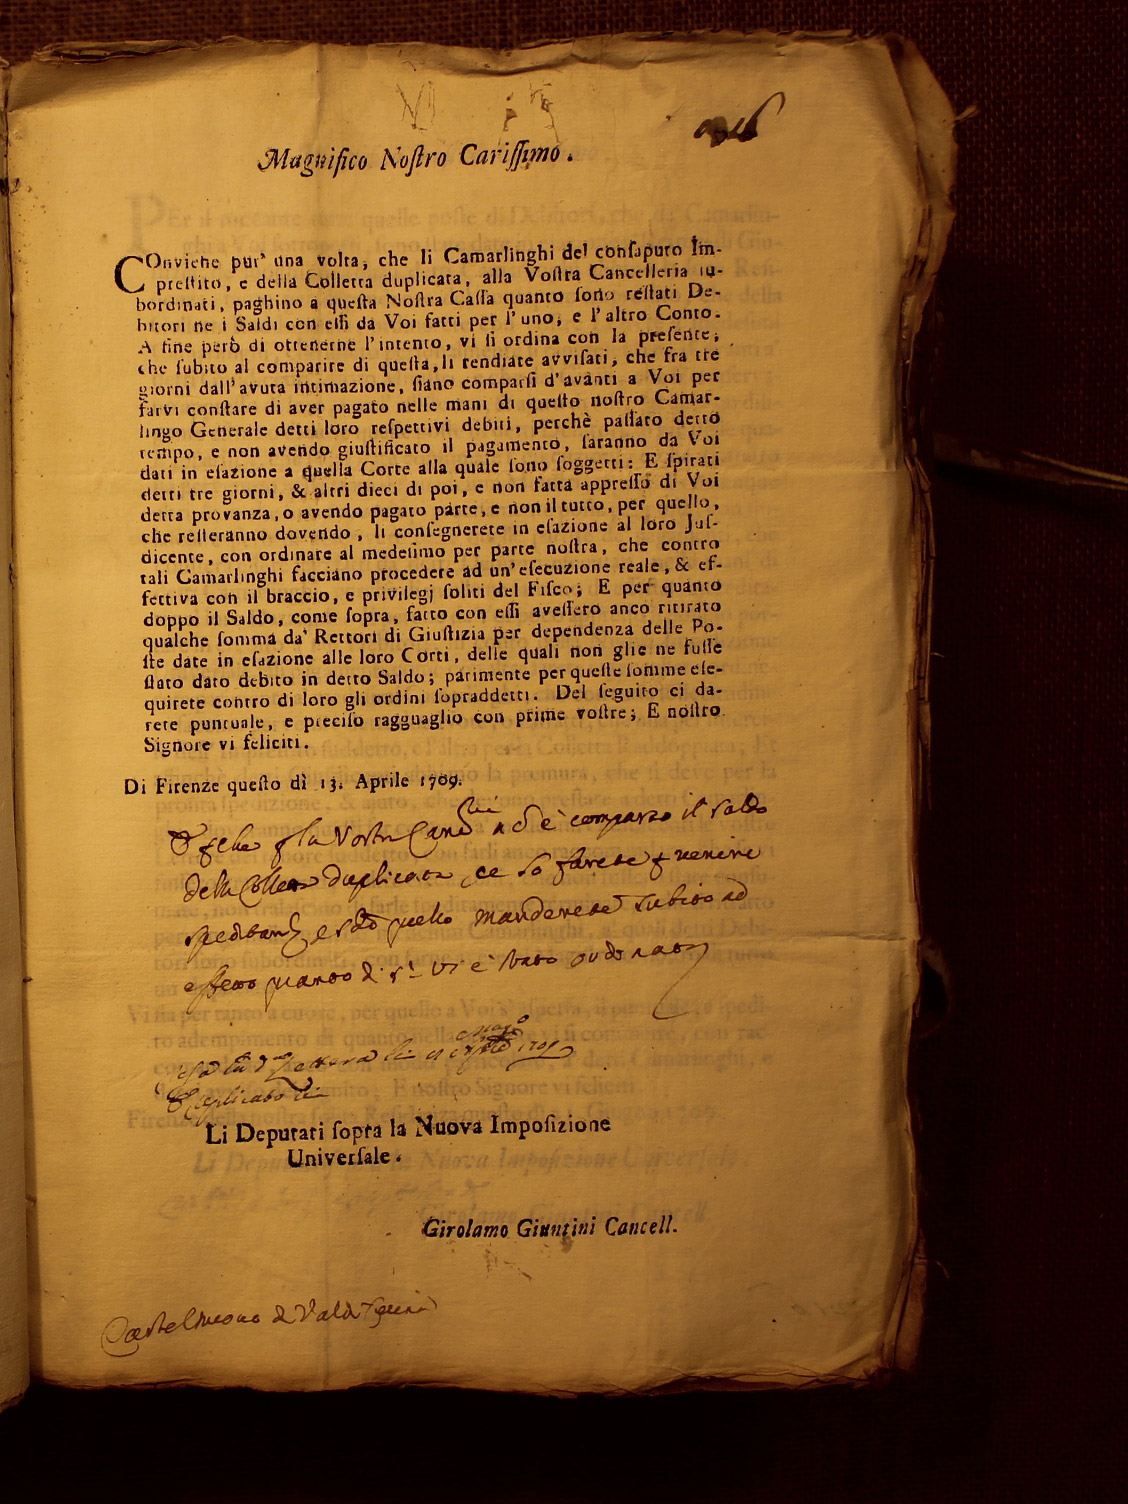 Magnifico Nostro Carissimo.
COnviene pur' una volta, che li Camarlinghi del consaputo Im-
prestito, e della Colletta duplicata, alla Vostra Cancelleria su-
bordinati, paghino a questa Nostra Cassa quanto sono restati De-
bitori ne i Saldi con essi da Voi fatti per l'uno, e l'altro Conto.
A fine però di ottenerne l'intento, vi si ordina con la presente,
che subito al comparire di questa, li rendiate avvisati, che fra tre
giorni dall'avuta intimazione, siano comparsi d'avanti a Voi per
farvi constare di aver pagato nelle mani di questo nostro Camar-
lingo Generale detti loro respettivi debiti, perchè passato detto
tempo, e non avendo giustificato il pagamento, saranno da Voi
dati in esazione a quella Corte alla quale sono soggetti: E spirati
detti tre giorni, & altri dieci di poi, e non fatta appresso di Voi
detta provanza, o avendo pagato parte, e non il tutto, per quello,
che resteranno dovendo, li consegnerete in esazione al loro Jus-
dicente, con ordinare al medesimo per parte nostra, che contro
tali Camarlinghi facciano procedere ad un'esecuzione reale, & ef-
fettiva con il braccio, e privilegj soliti del Fisco; E per quanto
doppo il Saldo, come sopra, fatto con essi avessero anco ritirato
qualche somma da' Rettori di Giustizia per dependenza delle Po-
ste date in esazione alle loro Corti, delle quali non glie ne fusse
stato dato debito in detto Saldo; parimente per queste somme ese-
quirete contro di loro gli ordini sopraddetti. Del seguito ci da-
rete puntuale, e preciso ragguaglio con prime vostre; E nostro
Signore vi feliciti.
Di Firenze questo dì 13. Aprile 1709.
Vostra è comparso il saldo
della duplicata ce lo farete venire
e quello manderete subito ad
effetto quanto vi è stato ordinato
Li Deputati sopra la Nuova Imposizione
Universale.
Girolamo Giuntini Cancell.